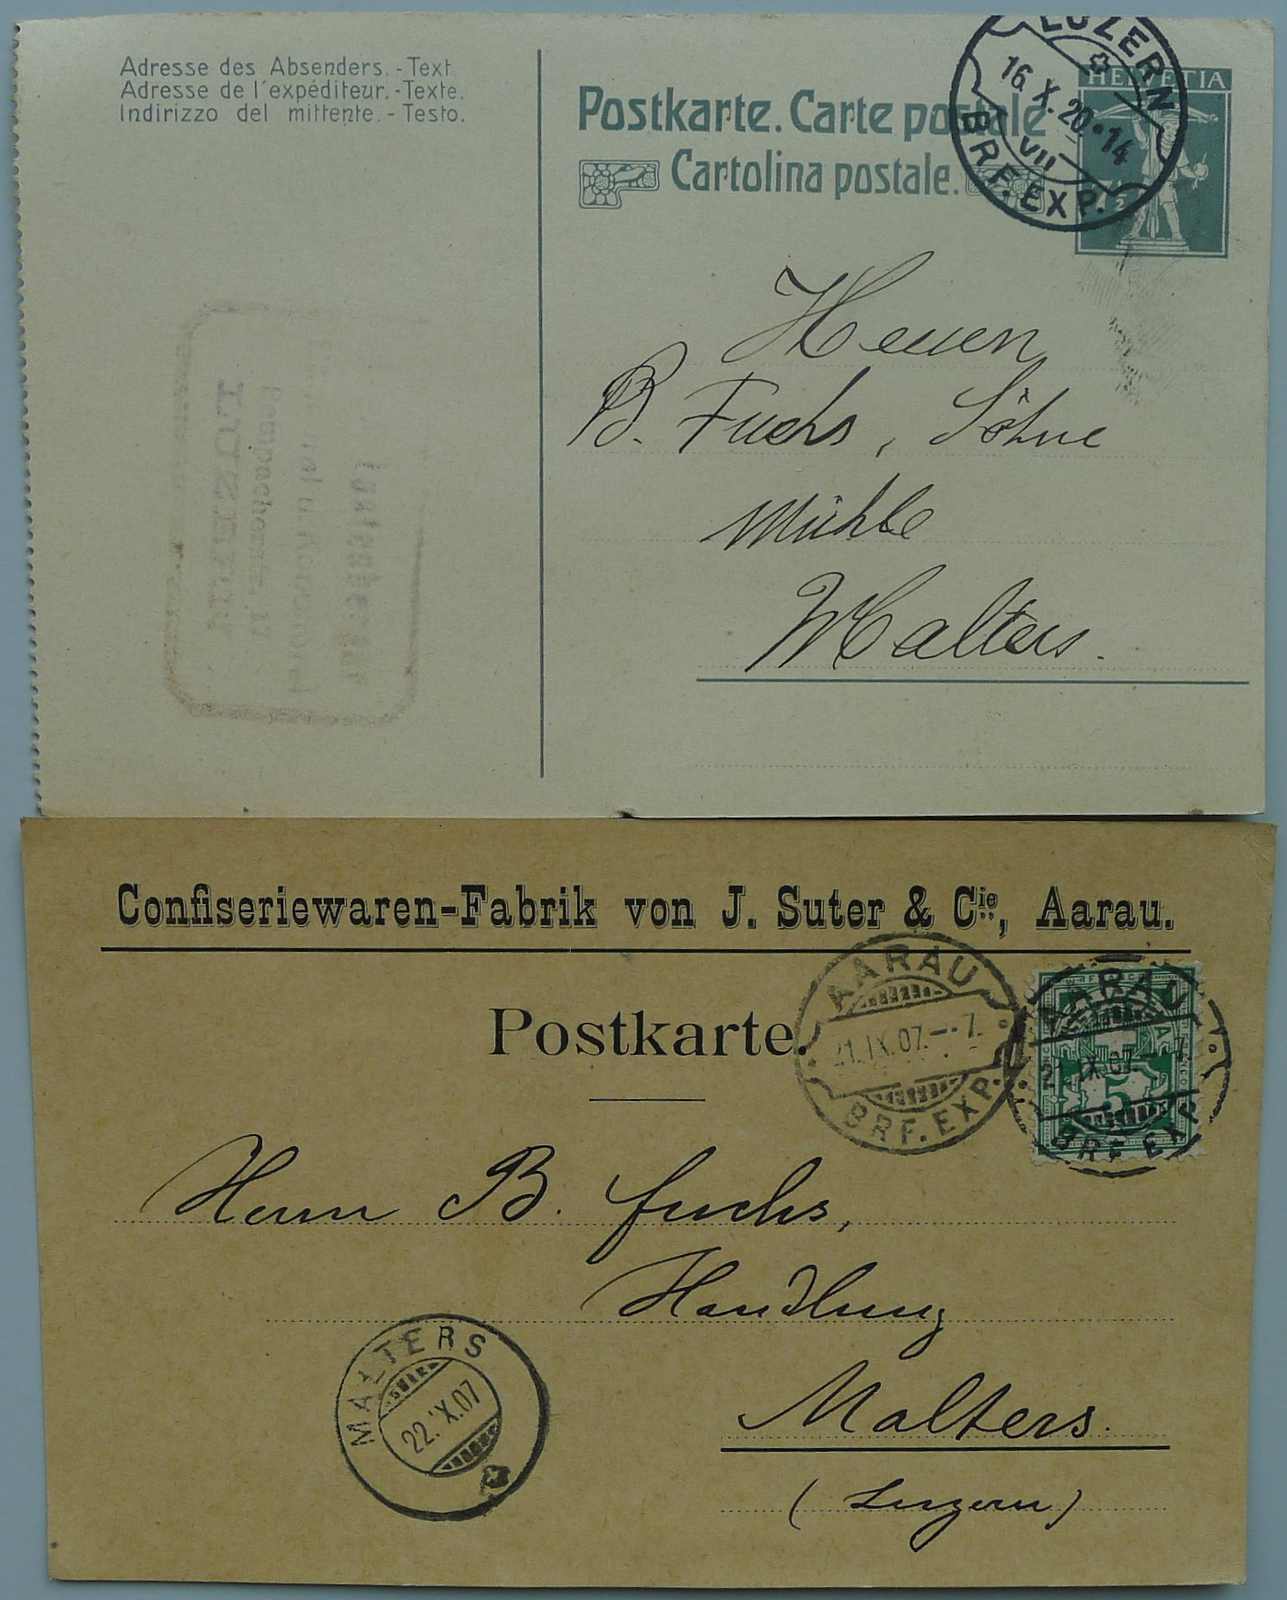 Adresse des Absenders.-Text.
Adresse de l'expéditeur.-Texte.
Indirizzo del mittente.-Testo.
Postkarte. Carte postale
Cartolina postale.
LUZERN
16.X.20.-14
VII
BRF. EXP.
HELVETIA
7½
Herren
B. Fuchs, Söhne
Mühle
Malters.
LUZERN
Confiseriewaren-Fabrik von J. Suter & Cie, Aarau.
Postkarte.
AARAU
21.IX.07.-7.
BRF. EXP.
AARAU
21.IX.07.-7.
BRF. EXP.
5
Herrn B. Fuchs,
Handlung
Malters.
(Luzern)
MALTERS
22.IX.07